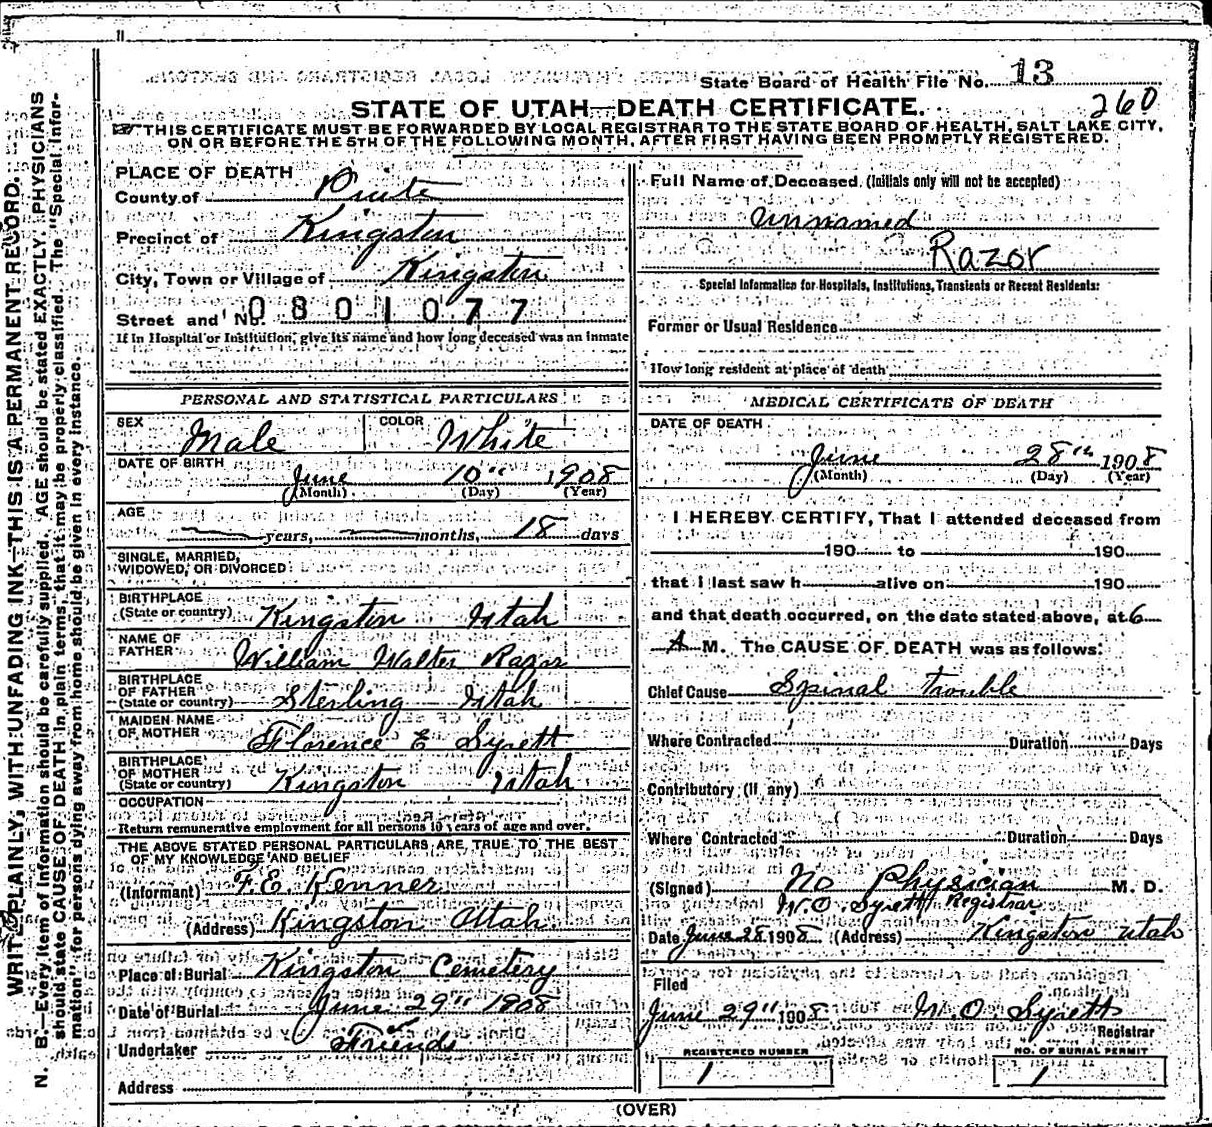 State Board of Health File No. 13
260
STATE OF UTAH—DEATH CERTIFICATE.
THIS CERTIFICATE MUST BE FORWARDED BY LOCAL REGISTRAR TO THE STATE BOARD OF HEALTH, SALT LAKE CITY,
ON OR BEFORE THE 5TH OF THE FOLLOWING MONTH, AFTER FIRST HAVING BEEN PROMPTLY REGISTERED.
PLACE OF DEATH
County of Piute
Precinct of Kingston
City, Town or Village of Kingston
Street and No. 0801077
If in Hospital or Institution, give its name and how long deceased was an inmate
PERSONAL AND STATISTICAL PARTICULARS
SEX Male COLOR White
DATE OF BIRTH
June 10" 1908
(Month) (Day) (Year)
AGE
years, months, 18 days
SINGLE, MARRIED,
WIDOWED, OR DIVORCED
BIRTHPLACE
(State or country) Kingston Utah
NAME OF
FATHER William Walter Razor
BIRTHPLACE
OF FATHER
(State or country) Sterling Utah
MAIDEN NAME
OF MOTHER Florence E Syrett
BIRTHPLACE
OF MOTHER
(State or country) Kingston Utah
OCCUPATION
Return remunerative employment for all persons 10 years of age and over.
THE ABOVE STATED PERSONAL PARTICULARS ARE TRUE TO THE BEST
OF MY KNOWLEDGE AND BELIEF
(Informant) F.E. Kenner
(Address) Kingston Utah
Place of Burial Kingston Cemetery
Date of Burial June 29" 1908
Undertaker Friends
Address
Full Name of Deceased. (Initials only will not be accepted)
Unnamed
Razor
Special Information for Hospitals, Institutions, Transients or Recent Residents:
Former or Usual Residence
How long resident at place of death
MEDICAL CERTIFICATE OF DEATH
DATE OF DEATH
June 28th 1908
(Month) (Day) (Year)
I HEREBY CERTIFY, That I attended deceased from
190 to 190
that I last saw h alive on 190
and that death occurred, on the date stated above, at 6
A M. The CAUSE OF DEATH was as follows:
Chief Cause Spinal trouble
Where Contracted Duration Days
Contributory (If any)
Where Contracted Duration Days
(Signed) No Physician M. D.
W.O. Syrett Registrar
Date June 28 1908 (Address) Kingston Utah
Filed
June 29" 1908 W. O. Syrett
Registrar
REGISTERED NUMBER
1
NO. OF BURIAL PERMIT
1
(OVER)
WRITE PLAINLY, WITH UNFADING INK—THIS IS A PERMANENT RECORD.
N. B.—Every item of information should be carefully supplied. AGE should be stated EXACTLY. PHYSICIANS
should state CAUSE OF DEATH in plain terms, that it may be properly classified. The "Special Infor-
mation" for persons dying away from home should be given in every instance.